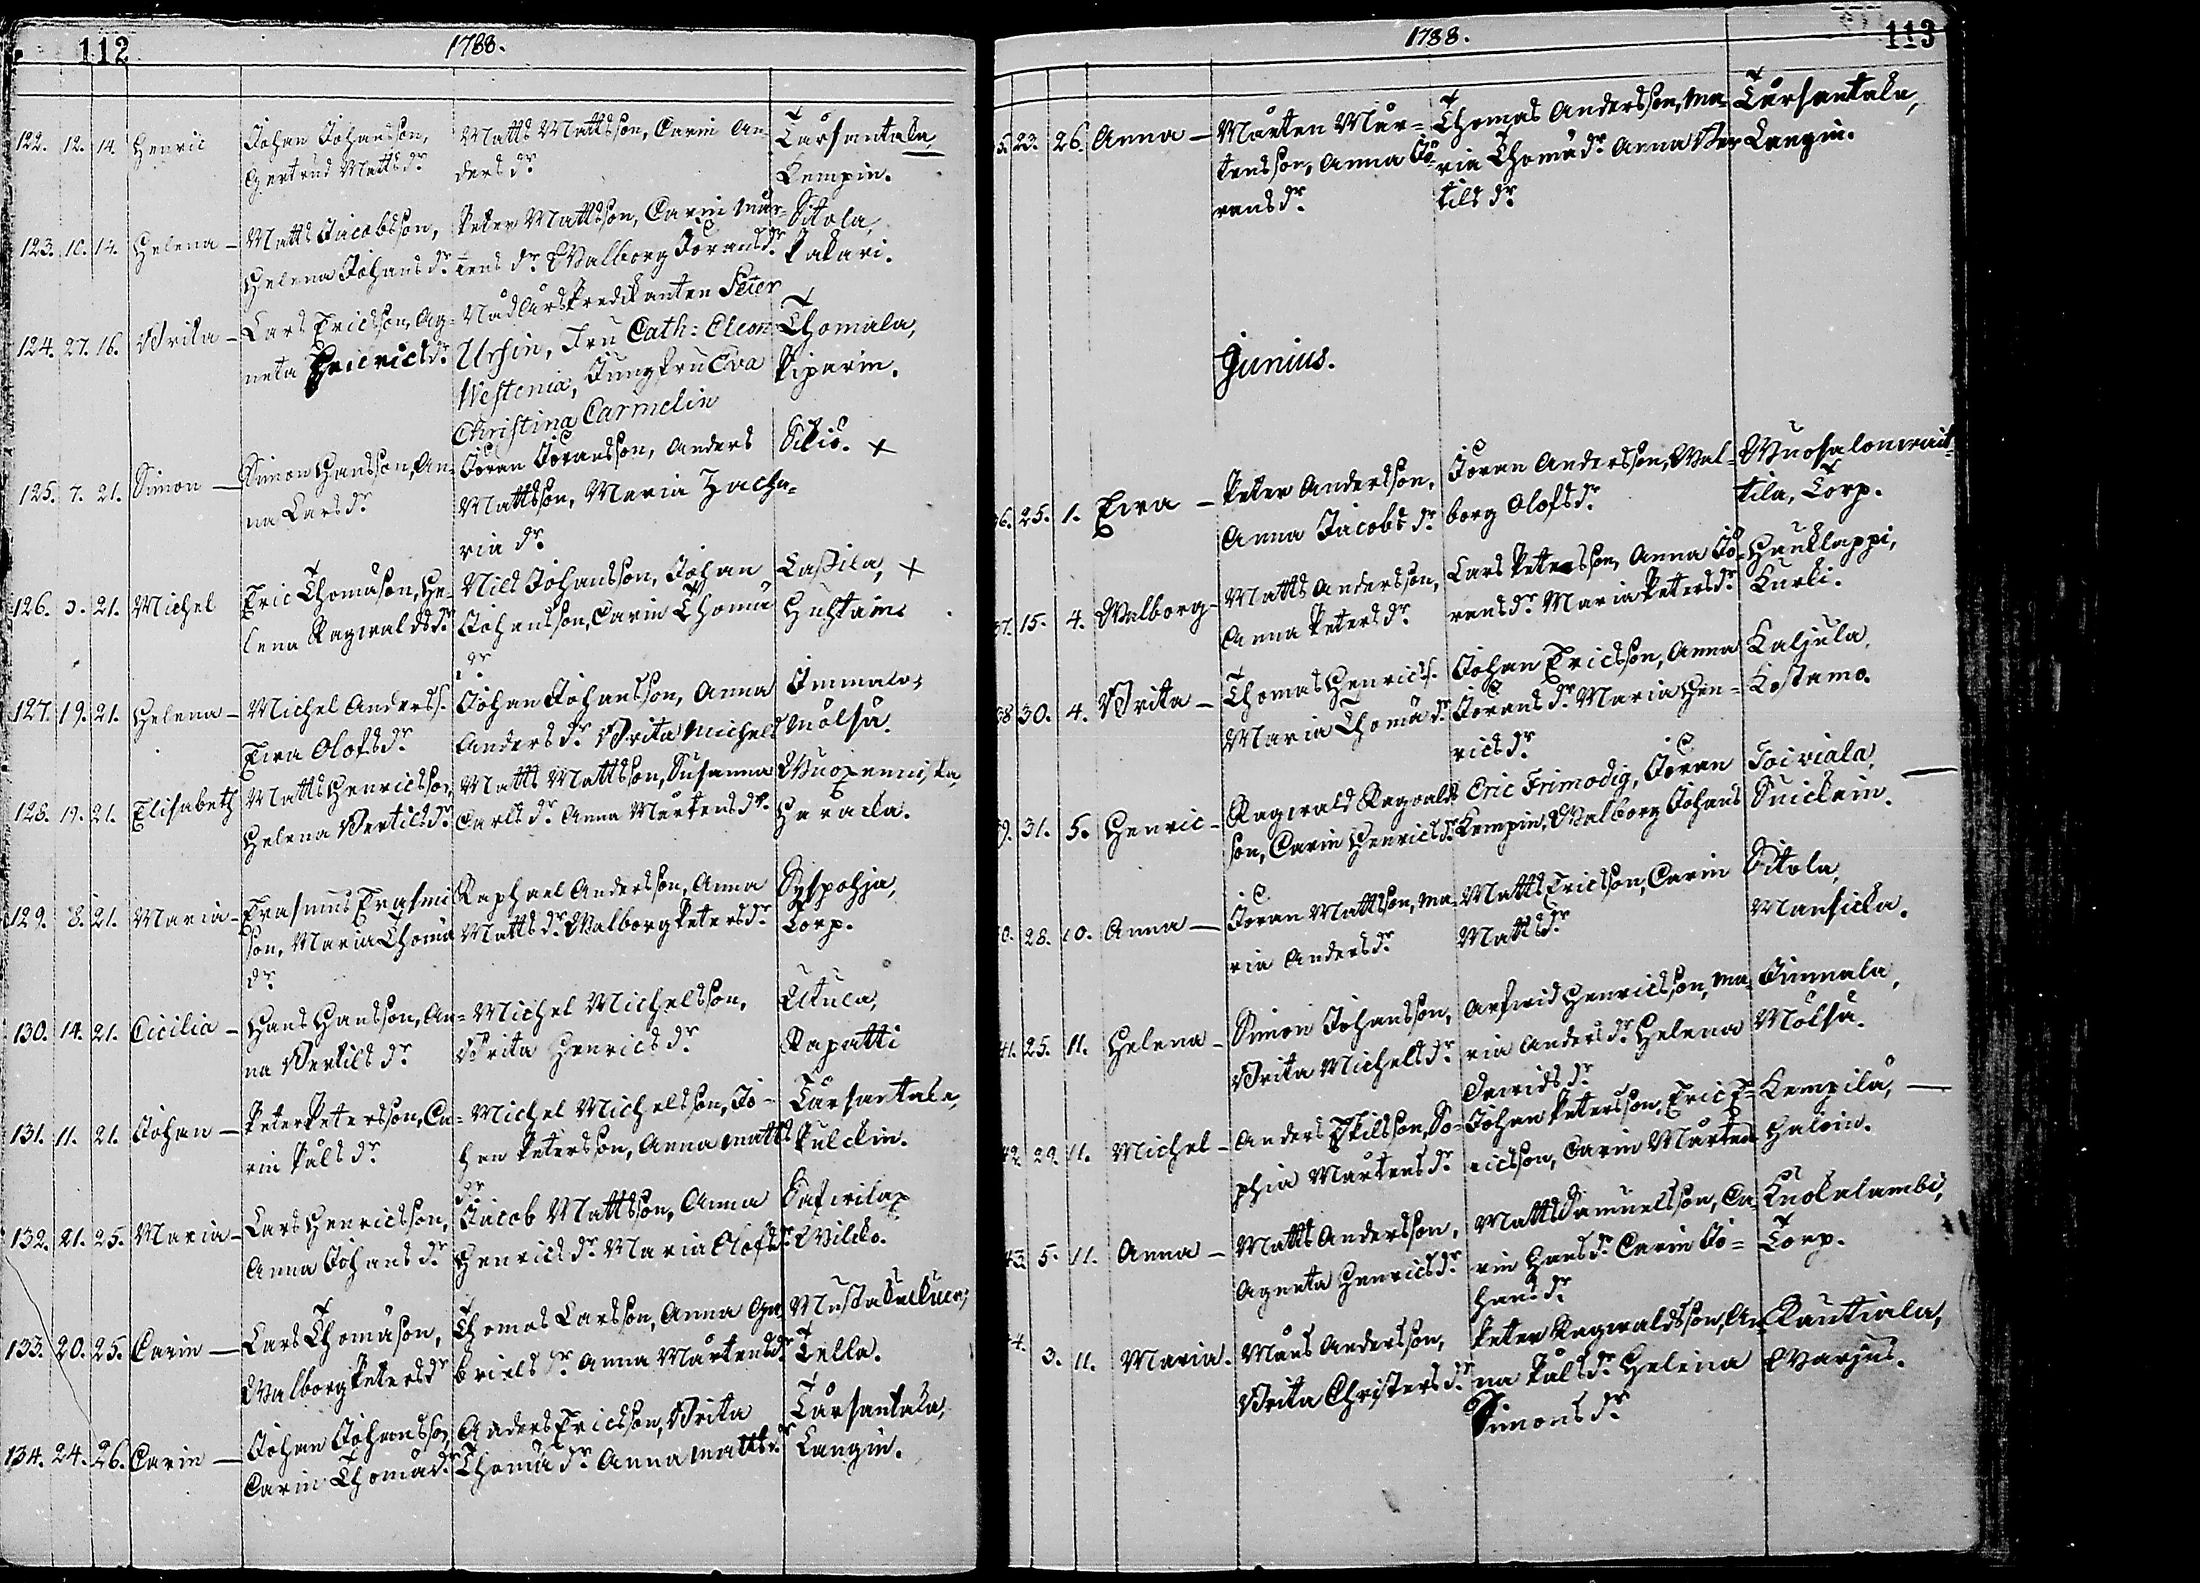 112
1788.
122. 12. 14. Henric
Johan Johansson,
Gertrud Matts dr
Matts Mattsson, Carin An
ders dr
Tarsantala
Kempin.
123. 10. 14. Helena —
Matts Jacobsson,
Helena Johans dr
Peter Mattsson, Carin Mår=
tens dr Walborg Jörans dr
Sitola,
Pakari.
124. 27. 16. Brita —
Lars Ericsson, Ag=
neta Henrics dr
Nådårs Predikanten Peter
Ursin, Fru Cath: Eleon
Westenia, Jungfru Eva
Christina Carmelin
Thomala,
Piparin.
125. 7. 21. Simon —
Simon Hansson, An=
na Lars dr
Jöran Jöransson, Anders
Mattsson, Maria Zacha=
riæ dr
Sikiö. +
126. 21. Michel
Eric Thomasson, He=
lena Ragwalds dr
Nils Johansson, Johan
Johansson, Carin Thomæ
dr
Lassila, +
127. 19. 21. Helena —
Michel Anderss.
Ewa Olofs dr
Johan Johansson, Anna
Anders dr Brita Michels
Immala,
Mälsä.
128. 19. 21. Elisabeth
Matts Henricsson,
Helena Bertils dr
Matts Mattsson, Susanna
Carls dr Anna Mårtens dr
Wuoxenniska,
Haracka.
129. 8. 21. Maria —
Erasmus Erasmi
son, Maria Thomæ
dr
Raphael Andersson, Anna
Matts dr Walborg Peters dr
Syspohja,
Torp.
130. 14. 21. Cicilia —
Hans Hansson, An=
na Bertils dr
Michel Michelsson,
Brita Henrics dr
Utula,
Rapatti
131. 11. 21. Johan —
Peter Petersson, Ca=
rin Påls dr
Michel Michelsson, Jo=
han Petersson, Anna Matts
dr
Tarsantala,
Pulckin.
132. 21. 25. Maria —
Lars Henricsson,
Anna Johans dr
Jacob Mattsson, Anna
Henrics dr Maria Olofs dr
Wilcko.
133. 20. 25. Carin —
Lars Thomasson,
Walborg Peters dr
Thomas Larsson, Anna Ga
briels dr Anna Mårtens dr
Tella.
134. 24. 26. Carin —
Johan Johansson,
Carin Thomæ dr
Anders Ericsson, Brita
Thomæ dr Anna Matts dr
Tarsantala,
Langin.
1788.
113
5. 23. 26. Anna —
Mårten Mår=
tensson, Anna Jö
rans dr
Thomas Andersson, Ma
ria Thomæ dr Anna Ber
tils dr
Tarsantala,
Langin.
Junius.
36. 25. 1. Ewa —
Peter Andersson,
Anna Jacobs dr
Jöran Andersson, Wal=
borg Olofs dr
Wuosalonwait
tila, Torp.
37. 15. 4. Walborg —
Matts Andersson,
Anna Peters dr
Lars Petersson, Anna Jö
rans dr Maria Peters dr
Hauklappi,
Kurki.
38. 30. 4. Brita —
Thomas Henricss.
Maria Thomæ dr
Johan Ericsson, Anna
Jörans dr Maria Hen=
rics dr
Kaljula,
Kostamo.
9. 31. 5. Henric —
Ragwald Ragwalds
son, Carin Henrics dr
Eric Frimodig, Jöran
Kempin, Walborg Johans
Toiviala, —
Suickain.
0. 28. 10. Anna —
Jöran Mattsson, Ma=
ria Anders dr
Matts Ericsson, Carin
Matts dr
Sitola,
Mansicka.
41. 25. 11. Helena —
Simon Johansson,
Brita Michels dr
Arfwid Henricsson, Ma=
ria Anders dr Helena
Dawids dr
Immala,
Mälsä.
42. 29. 11. Michel —
Anders Eskilsson, So=
phia Mårtens dr
Johan Petersson, Eric E=
ricsson, Carin Mårtens
Kempilä, —
Haloin.
43. 5. 11. Anna —
Matts Andersson,
Agneta Henrics dr
Matts Samuelsson, Ca=
rin Hans dr Carin Jo=
hans dr
Kuokalambi,
Torp.
4. 3. 11. Maria.
Måns Andersson,
Brita Christers dr
Peter Ragwaldsson, An
na Påls dr Helena
Simons dr
Rautiala,
Warjus.